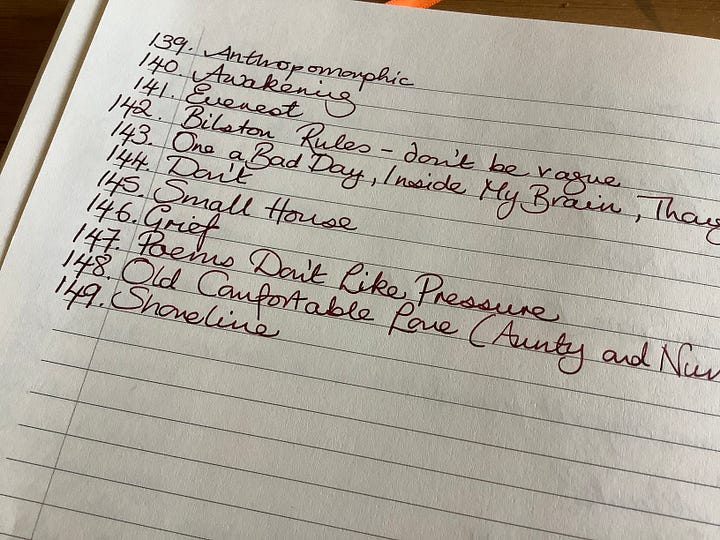 139. Anthropomorphic
140. Awakening
141. Everest
142. Bilston Rules - don't be vague
143. One a Bad Day, Inside My Brain,
144. Don't
145. Small House
146. Grief
147. Poems Don't Like Pressure
148. Old Comfortable Love (Aunty and
149. Shoreline